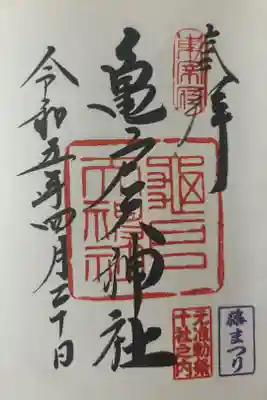 奉拝
東宰府
亀戸天神社
令和五年四月二十日
元准勅祭
十社之内
藤まつり